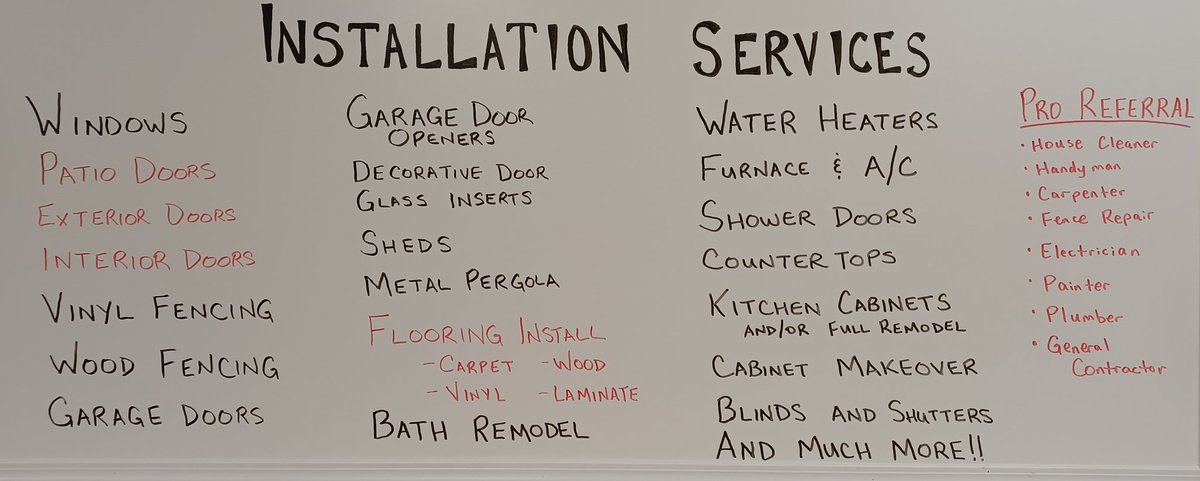 INSTALLATION SERVICES
WINDOWS
PATIO DOORS
EXTERIOR DOORS
INTERIOR DOORS
VINYL FENCING
WOOD FENCING
GARAGE DOORS
GARAGE DOOR
OPENERS
DECORATIVE DOOR
GLASS INSERTS
SHEDS
METAL PERGOLA
FLOORING INSTALL
-CARPET -WOOD
-VINYL -LAMINATE
BATH REMODEL
WATER HEATERS
FURNACE & A/C
SHOWER DOORS
COUNTER TOPS
KITCHEN CABINETS
AND/OR FULL REMODEL
CABINET MAKEOVER
BLINDS AND SHUTTERS
AND MUCH MORE!!
PRO REFERRAL
• House Cleaner
• Handyman
• Carpenter
• Fence Repair
• Electrician
• Painter
• Plumber
• General
Contractor